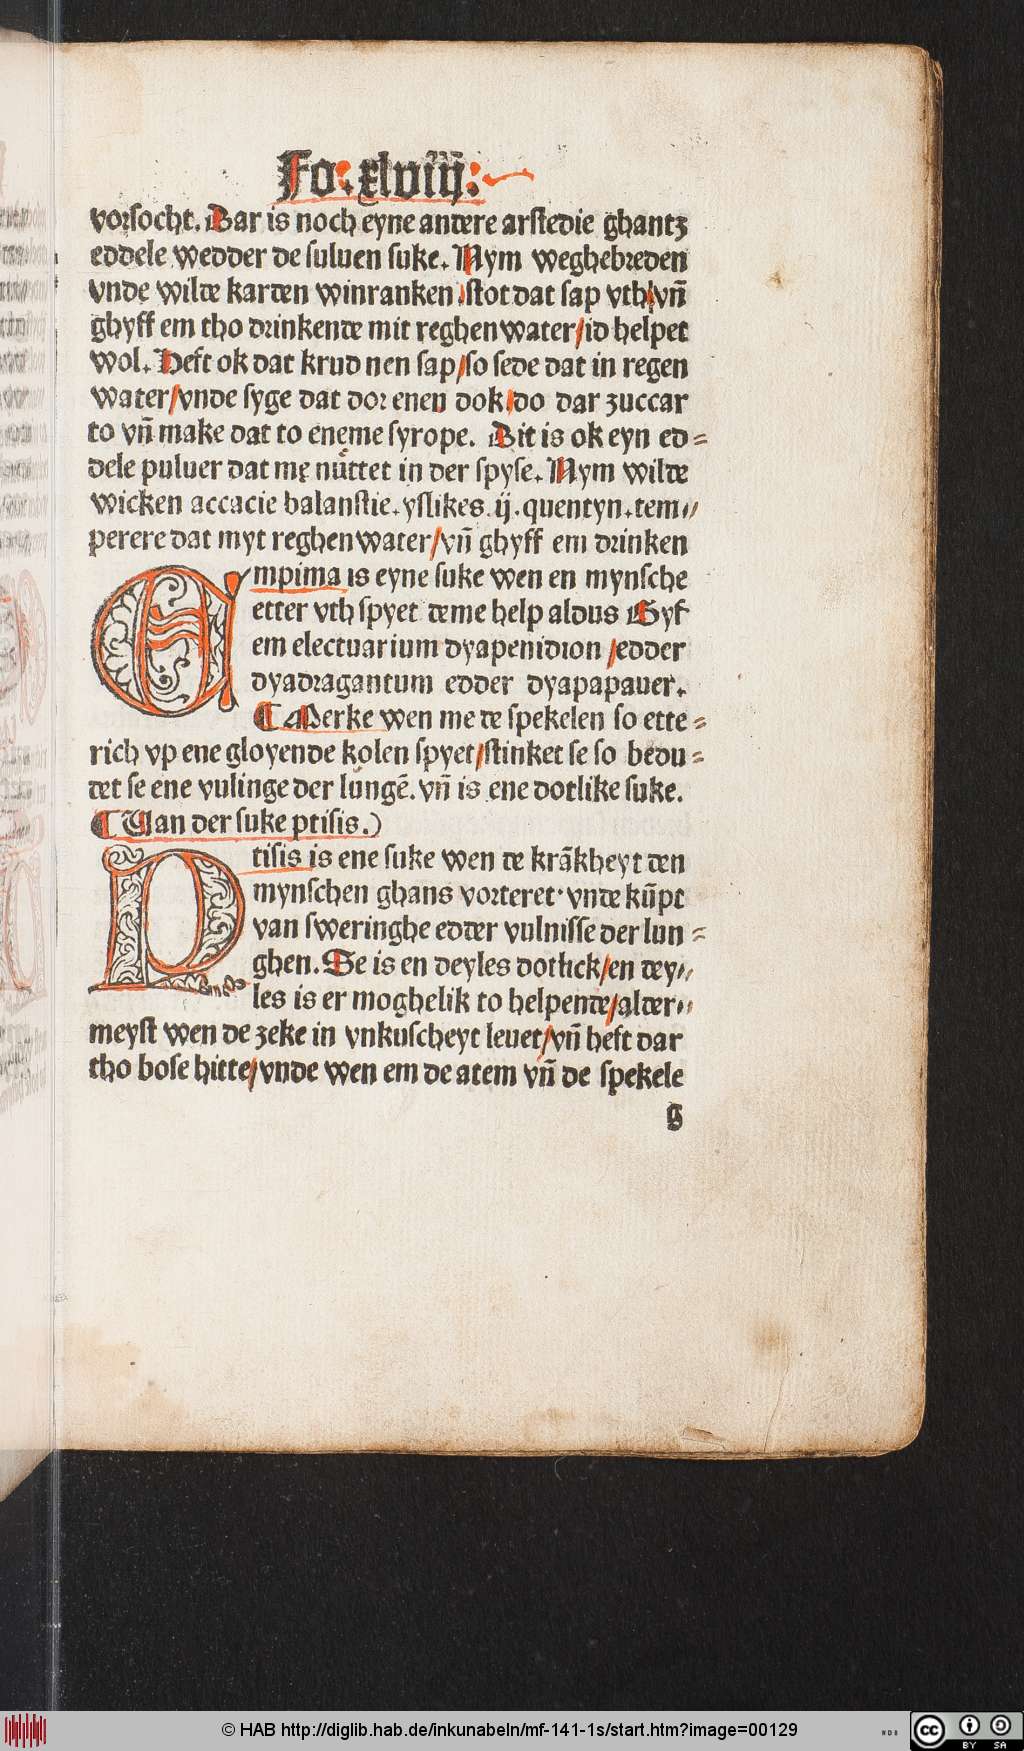 Fo. xlviij.
vorsocht. Dar is noch eyne andere arstedie ghantz
eddele wedder de suluen suke. Nym weghebreden
vnde wilde karden winranken / stot dat sap vth / vñ
ghyff em tho drinkende mit reghenwater / id helpet
wol. Heft ok dat krud nen sap / so sede dat in regen
water / vnde syge dat dor enen dok / do dar zuccar
to vñ make dat to eneme syrope. Dit is ok eyn ed=
dele puluer dat me nuͤttet in der spyse. Nym wilde
wicken accacie balanstie. yslikes. ij. quentyn. tem=
perere dat myt reghenwater / vñ ghyff em drinken
Empima is eyne suke wen en mynsche
etter vth spyet deme help aldus Gyf
em electuarium dyapenidion / edder
dyadragantum edder dyapapauer.
¶ Merke wen me de spekelen so ette=
rich vp ene gloyende kolen spyet / stinket se so bedu=
det se ene vulinge der lungē. vñ is ene dotlike suke.
¶ Uan der suke ptisis.)
Ptisis is ene suke wen de krākheyt den
mynschen ghans vorteret. vnde kūpt
van sweringhe edder vulnisse der lun=
ghen. Se is en deyles dotlick / en dey=
les is er moghelik to helpende / alder=
meyst wen de zeke in vnkuscheyt leuet / vñ heft dar
tho bose hitte / vnde wen em de atem vñ de spekele
g
© HAB http://diglib.hab.de/inkunabeln/mf-141-1s/start.htm?image=00129
WDB
cc
BY SA